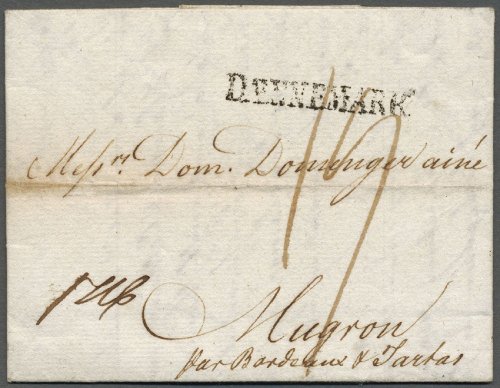 DENNEMARK
Messrs. Dom. Domenger ainé
Mugron
par Bordeaux & Tartas